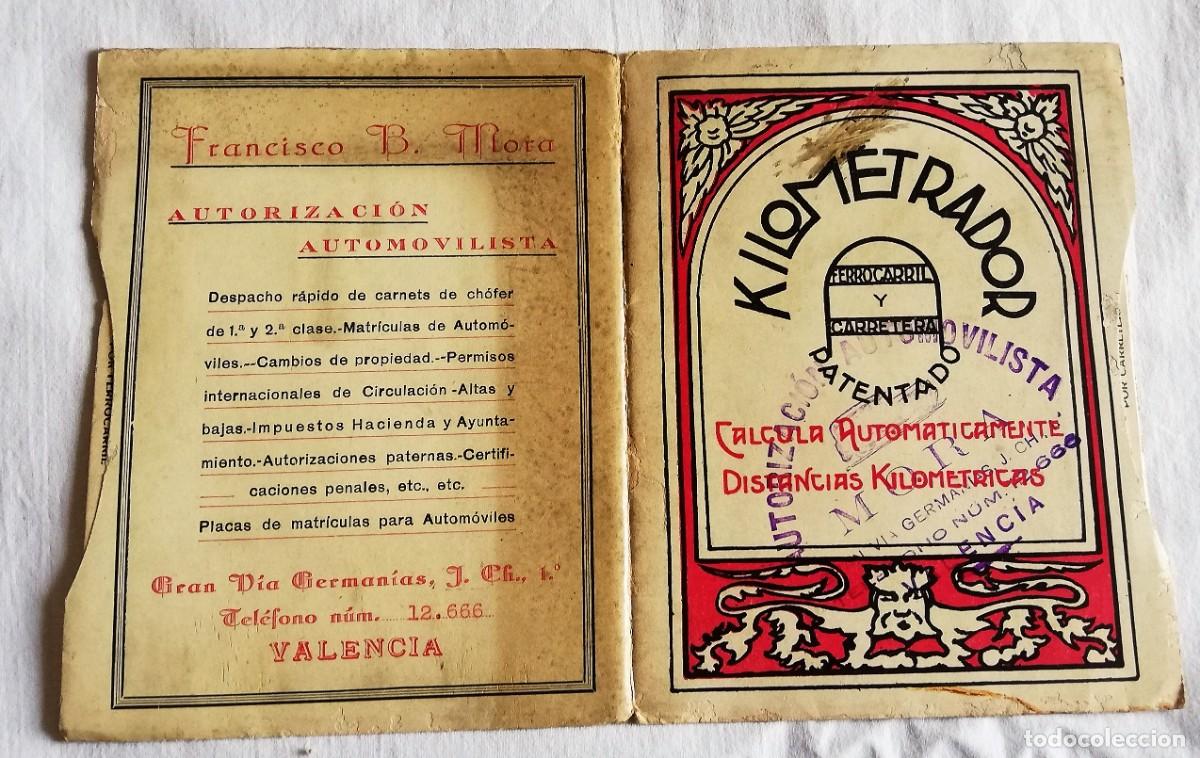 Francisco B. Mora
AUTORIZACIÓN
AUTOMOVILISTA
Despacho rápido de carnets de chófer
de 1.ª y 2.ª clase.-Matrículas de Automó-
viles.--Cambios de propiedad.--Permisos
internacionales de Circulación-Altas y
bajas.-Impuestos Hacienda y Ayunta-
miento.-Autorizaciones paternas.-Certifi-
caciones penales, etc., etc.
Placas de matrículas para Automóviles
Gran Vía Germanías, J. Ch., 1.º
Teléfono núm. 12.666
VALENCIA
POR FERROCARRIL
KILOMETRADOR
FERROCARRIL
Y
CARRETERA
PATENTADO
CALCULA AUTOMATICAMENTE
DISTANCIAS KILOMETRICAS
AUTORIZACIÓN AUTOMOVILISTA
MORA
VIA GERMANIAS J. CH.
NÚM. 12.666
ENCIA
POR CARRETE
todocoleccion